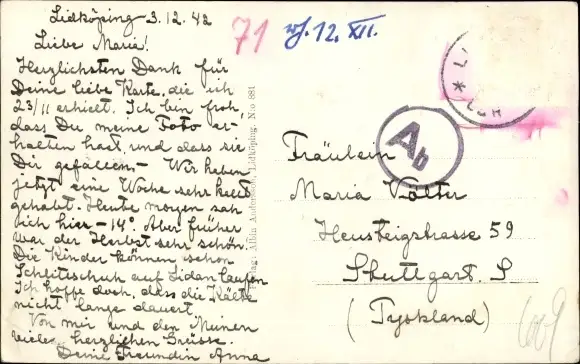 Lidköping 3.12.42
Liebe Maria!
Herzlichsten Dank für
Deine liebe Karte, die ich
23/11 erhielt. Ich bin froh,
dass Du meine Foto er-
halten hast, und dass sie
Dir gefallen. - Wir haben
jetzt eine Woche sehr kalt
gehabt. Heute morgen sah
ich hier -14°. Aber früher
war der Herbst sehr schön.
Die Kinder können schon
Schlittschuh auf Lidan laufen
Ich hoffe doch, dass die Kälte
nicht lange dauert.
Von mir und den Meinen
viele herzlichen Grüsse.
Deine Freundin Anna
71
12. XII.
Ab
Fräulein
Maria Völter
Heusteigstrasse 59
Stuttgart. S
(Tyskland)
Lidköping. N:o 884